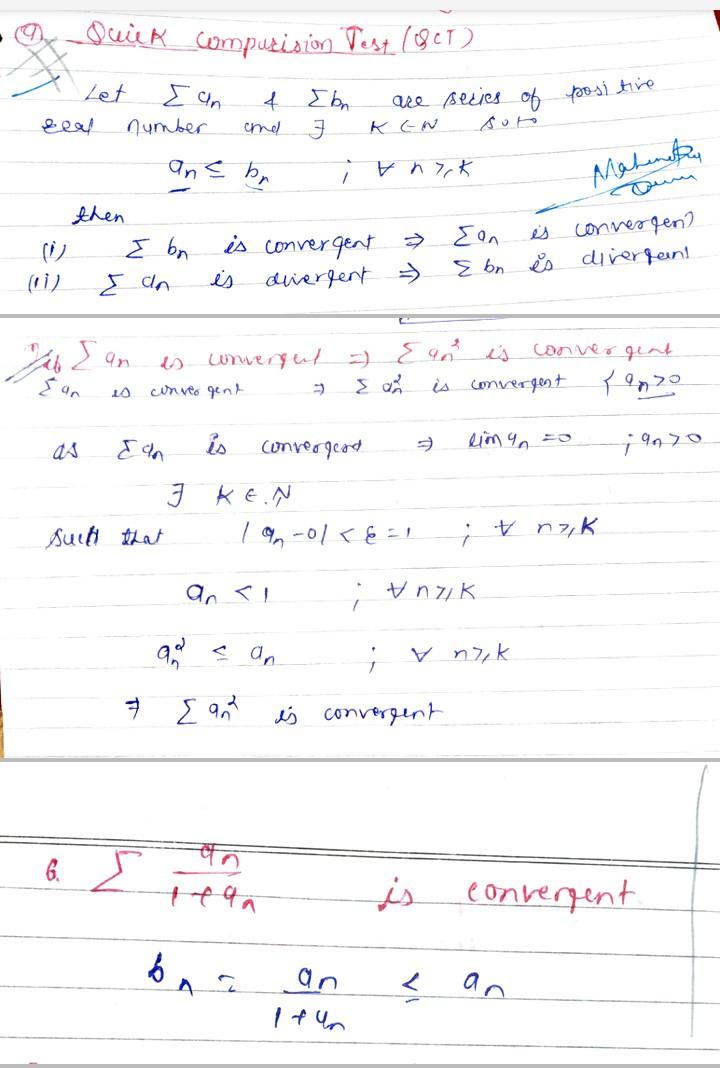 9. Quick Compurision Test (QCT)
Let Σ an & Σbn are series of positive
real number and ∃ K ∈ N s.t.
an ≤ bn ; ∀ n ≥ K
then
(i) Σ bn is convergent ⇒ Σan is convergent
(ii) Σ an is divergent ⇒ Σ bn is divergent
if Σ an is convergent ⇒ Σ an² is convergent
Σ an is convergent ⇒ Σ an² is convergent { an>0
as Σ an is convergent ⇒ lim an = 0 ; an > 0
∃ K ∈ N
Such that | an - 0| < ε = 1 ; ∀ n ≥ K
an < 1 ; ∀ n ≥ K
an² ≤ an ; ∀ n ≥ K
⇒ Σ an² is convergent
6. Σ an / 1 + an is convergent
bn = an / 1 + an ≤ an